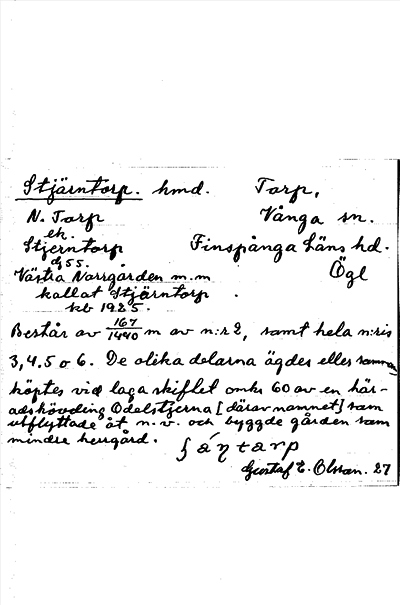 Stjärntorp. hmd. Torp,
N. Torp Vånga sn.
ek.
Stjerntorp Finspånga Läns hd.
Gss. Ögl
Västra Norrgården m.m
kallat Stjärntorp
kb 1925.
Består av 167/1440 m av n:r 2, samt hela n:ris
3, 4. 5 o 6. De olika delarna ägdes eller samman
köptes vid laga skiftet omkr 60 av en här-
adshövding Odelstjerna [därav namnet] som
utflyttade åt n.v. och byggde gården som
mindre herrgård.
Gustaf E. Olsson. 27